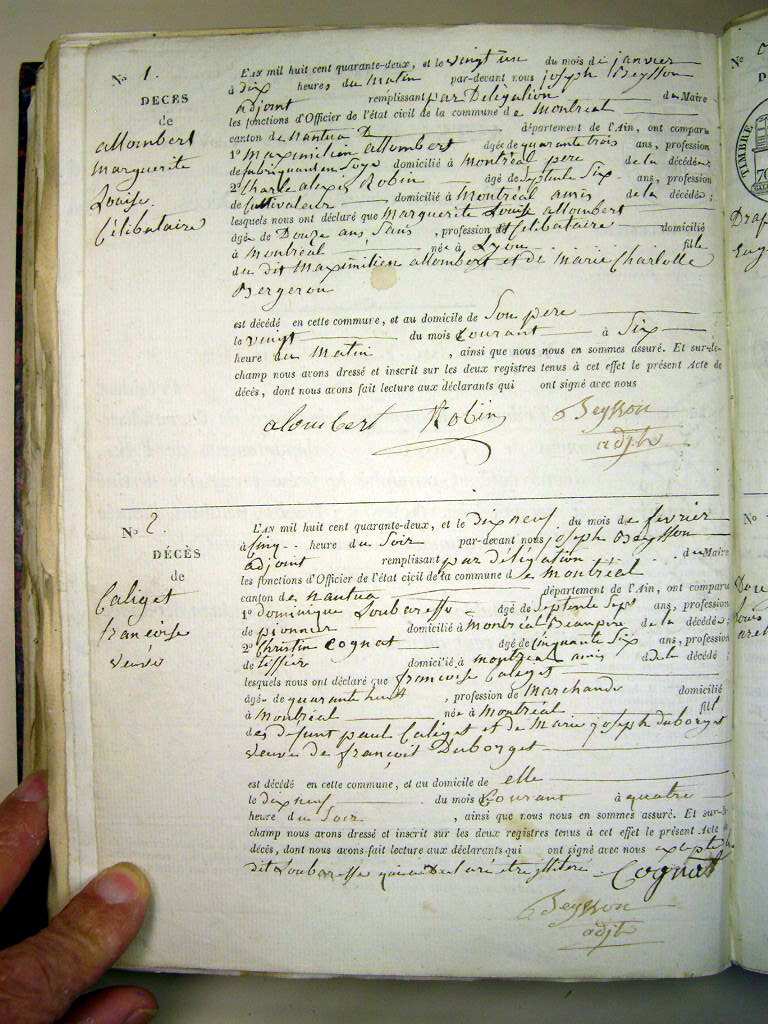 No 1.
DECES
de
allombert
marguerite
Louise.
Célibataire
L'AN mil huit cent quarante-deux, et le vingt un du mois de janvier
à Dix heures du matin par-devant nous joseph Beysson
adjoint remplissant par Délégation du Maire
les fonctions d'Officier de l'état civil de la commune de montréal
canton de nantua D département de l'Ain, ont comparu
1o Maximilien allombert âgé de quarante trois ans, profession
de fabriquant en Soye domicilié à montréal pere de la décédée
2o Charle alexis Robin âgé de Septente Six ans, profession
de Cultivateur domicilié à Montréal amis de la décédée ;
lesquels nous ont déclaré que Marguerite Louise allombert
âgée de Douze ans Sans , profession et Célibataire domicilié
à montréal née à Lyon fille
du dit Maximilien allombert et de Marie Charlotte
Bergeron
est décédé en cette commune, et au domicile de Son pere
le vingt du mois Courant à Six
heure du Matin , ainsi que nous nous en sommes assuré. Et sur-le-
champ nous avons dressé et inscrit sur les deux registres tenus à cet effet le présent Acte de
décès, dont nous avons fait lecture aux déclarants qui ont signé avec nous
alombert Robin Beysson
adjt
No 2.
DÉCÈS
de
Caliget
francoise
veuve
L'AN mil huit cent quarante-deux, et le dix neuf du mois de fevrier
à Cinq heure du Soir par-devant nous joseph Beysson
adjoint remplissant par délégation du Maire
les fonctions d'Officier de l'état civil de la commune de Montréal
canton de nantua département de l'Ain, ont comparu
1o dominique Loubaresse âgé de Septente Sept ans, profession
de pionnier domicilié à Montréal Beaupere de la décédée ;
2o Christin Cognat âgé de Cinquante Six ans, profession
de tissier domicilié à montreal amis de la décédé ;
lesquels nous ont déclaré que francoise Caliget
âgée de quarante huit , profession de Marchande domicilié
à Montréal née à Montréal fille
des défunt paul Caliget et de Marie joseph duborget
veuve de françois Duborget
est décédé en cette commune, et au domicile de elle
le dix neuf du mois Courant à quatre
heure du Soir , ainsi que nous nous en sommes assuré. Et sur-le-
champ nous avons dressé et inscrit sur les deux registres tenus à cet effet le présent Acte de
décès, dont nous avons fait lecture aux déclarants qui ont signé avec nous exepté le
dit Loubaresse qui a Declaré etre illiteré Cognat
Beysson
adjt
No
D
TIMBRE
70
Drap
No